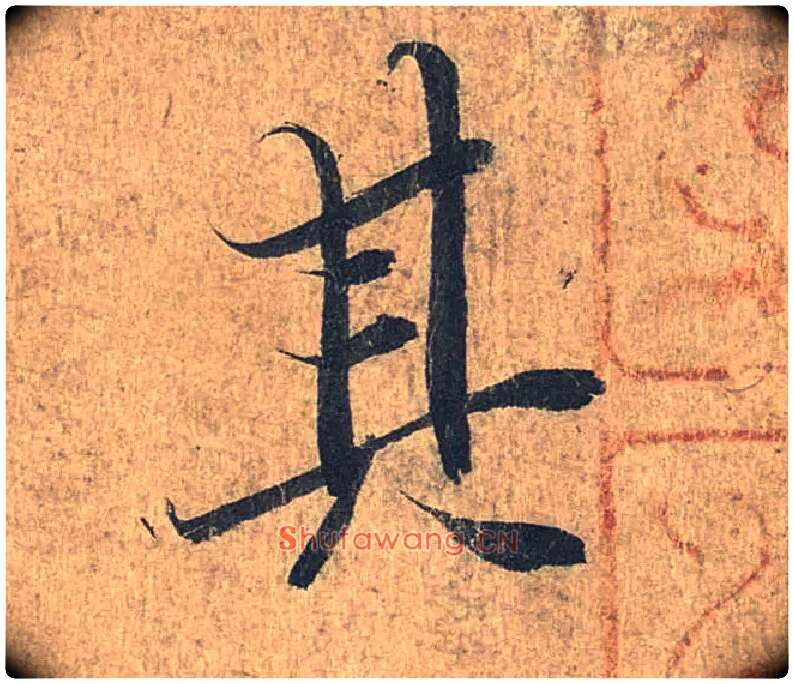 其
Shufawang.CN